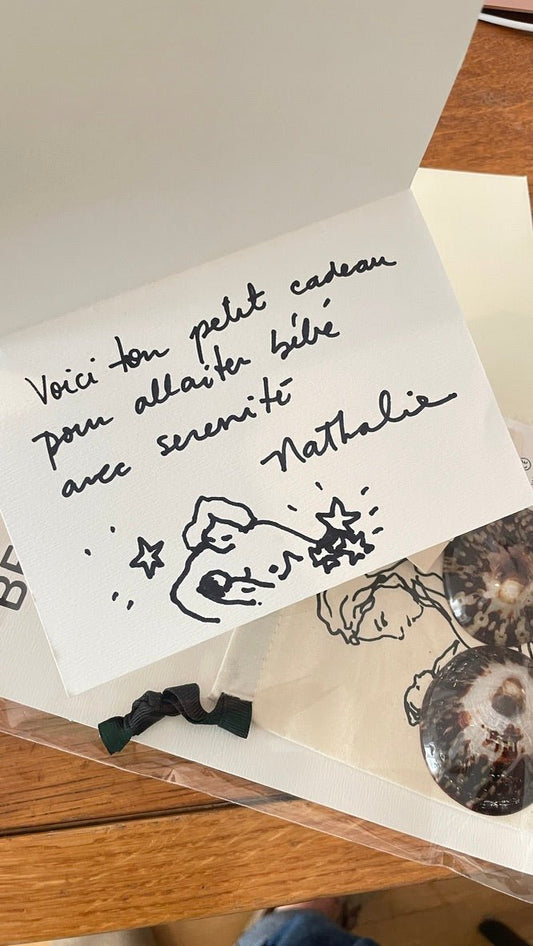 Voici ton petit cadeau
pour allaiter bébé
avec serenité
Nathalie
BE